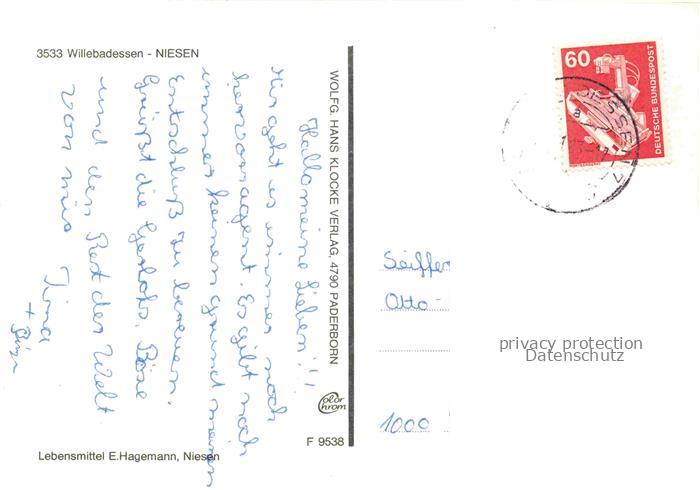 3533 Willebadessen - NIESEN
Hallo meine Lieben!!!
Mir geht es immer noch
hervorragend. Es gibt noch
immer keinen Grund meinen
Entschluß zu bereuen.
Grüßt die
und den Rest der Welt
von mir Tina
+
WOLFG. HANS KLOCKE VERLAG, 4790 PADERBORN
Color
chrom
F 9538
Lebensmittel E.Hagemann, Niesen
60
DEUTSCHE BUNDESPOST
a
Seiffer
Otto -
1000
privacy protection
Datenschutz